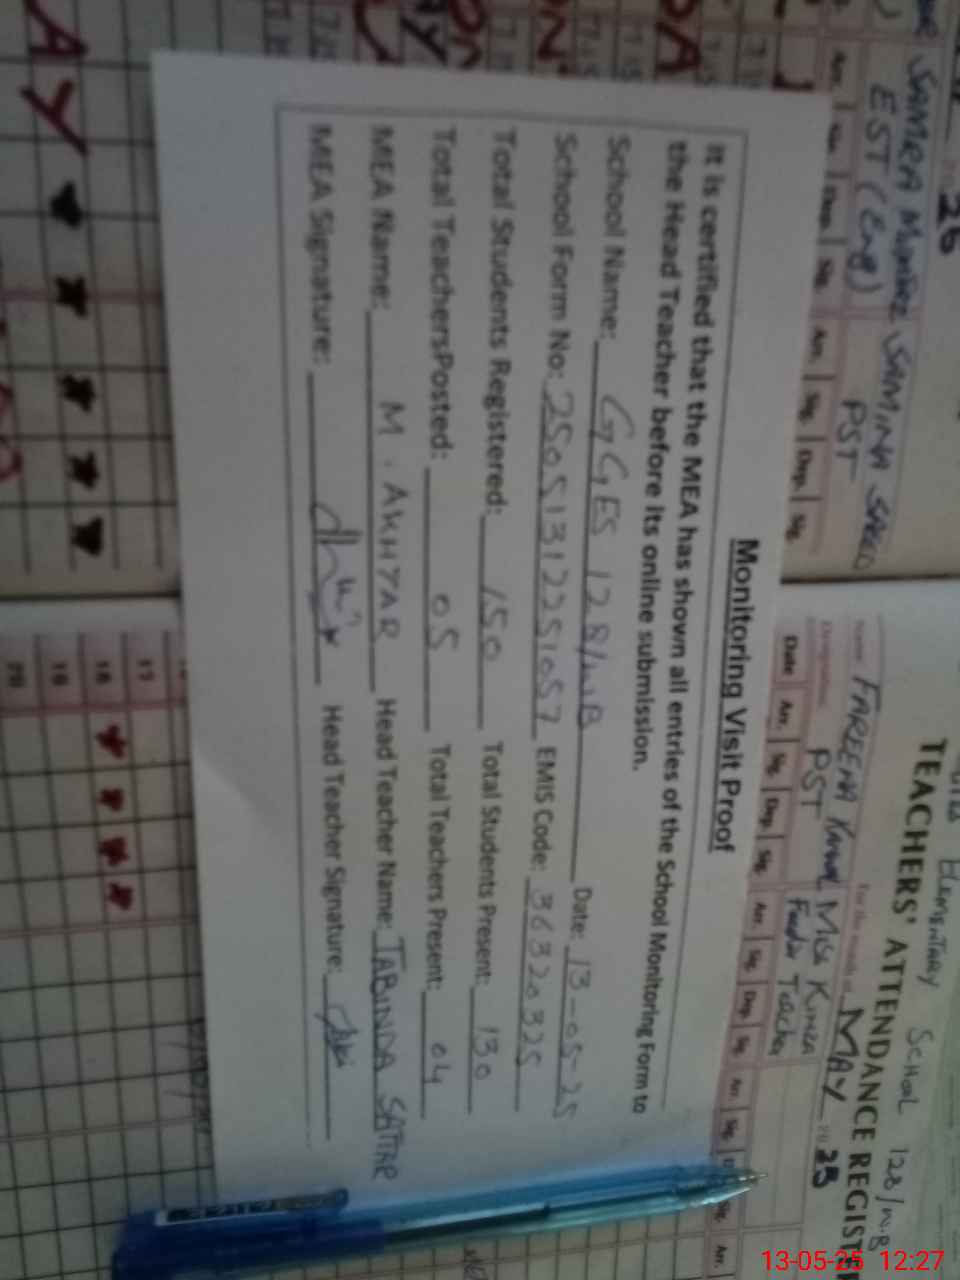 Monitoring Visit Proof
It is certified that the MEA has shown all entries of the School Monitoring Form to
the Head Teacher before its online submission.
School Name: GGES 128/WB Date: 13-05-25
School Form No: 25051312251057 EMIS Code: 36320325
Total Students Registered: 150 Total Students Present: 130
Total TeachersPosted: 05 Total Teachers Present: 04
MEA Name: M. AKHTAR Head Teacher Name: TABINDA SATTAR
MEA Signature: Head Teacher Signature:
SAMRA SAMINA SAEED
EST (Eng) PST
Arr. Sig. Dep. Sig. Arr. Sig. Dep. Sig.
Elementary School 128/W.B
TEACHERS' ATTENDANCE REGISTE
MAY 25
FAREENA Kanwal Miss Kinza
PST Feeder Teacher
Date Arr. Sig. Dep. Sig. Arr. Sig. Dep. Sig. Arr. Sig. Arr.
17
18
19
20
13-05-25 12:27